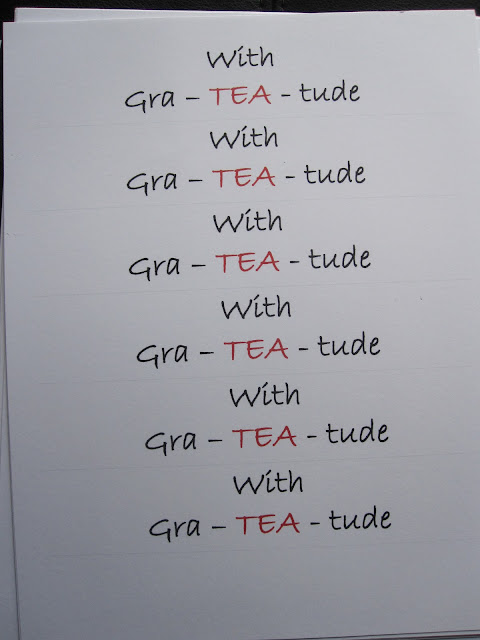 With
Gra – TEA - tude
With
Gra – TEA - tude
With
Gra – TEA - tude
With
Gra – TEA - tude
With
Gra – TEA - tude
With
Gra – TEA - tude